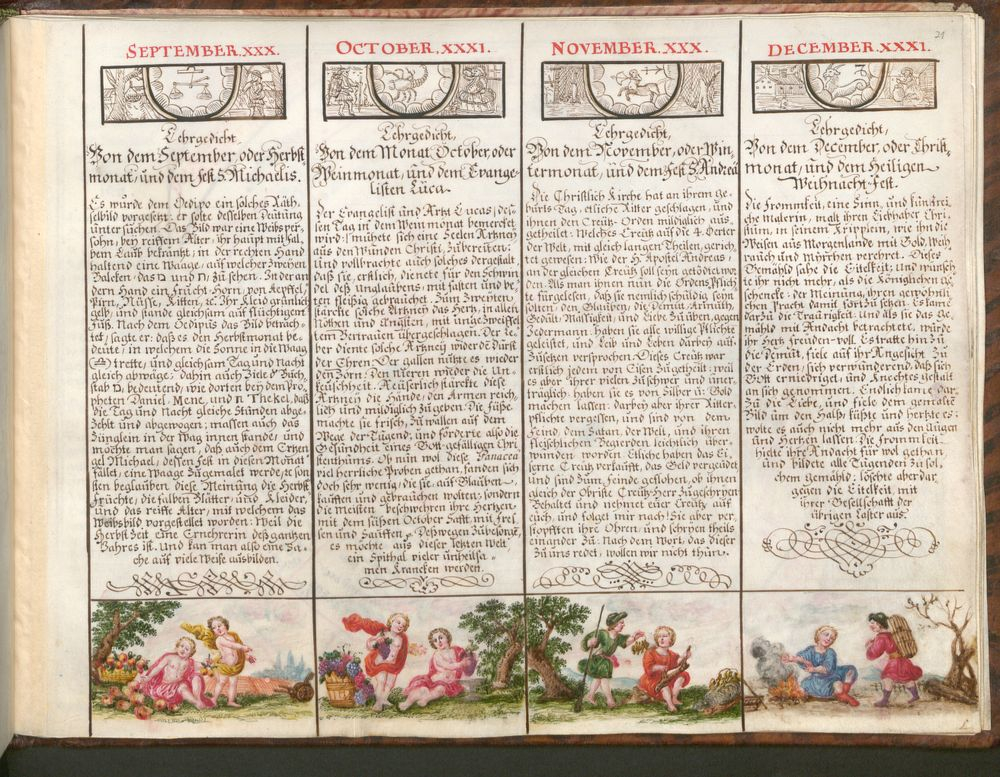 21
SEPTEMBER.XXX.
Lehrgedicht,
Von dem September, oder Herbst
monat, und dem Fest S. Michaelis.
Es wurde dem Oedipo ein solches Räth,
selbild vorgesent: er solte desselben Deutung
untersuchen. Das Bild war eine Weibsper
sohn, bey reiffem Alter, ihr Haupt mit fal,
bem Laub bekräntzt, in der rechten Hand
haltend eine Waage, auf welcher zweyen
Balcken, das D und N, zu sehen. In der an
dern Hand ein Frucht-Horn, von Aepfel,
Pirn, Nüsse, Kitten, ec. Ihr Kleid grünlich
gelb, und stande gleichsam auf flüchtigem
Fuß. Nach dem Oedipus das Bild betrach,
tet, sagte er: daß es den Herbstmonat be,
deute, in welchem die Sonne in die Waag
trette, und gleichsam Tag und Nacht
gleich abwäge: dahin auch Ziele der Buch,
stab D, bedeutend, wie dorten bey dem Pro,
pheten Daniel: Mene, und N Thekel, daß
die Tag und Nacht gleiche Stunden abge,
zehlt und abgewogen; massen auch das
Zünglein in der Wag innen stande, und
möchte man sagen, daß auch dem Ertzen
gel Michael, dessen Fest in diesen Monat
fällt, eine Waage zugemalet werde, ec son
sten beglauben diese Meinung die Herbst
Früchte, die falben Blätter, und Kleider,
und das reiffe Alter, mit welchem das
Weibsbild vorgestellet worden: Weil die
Herbstzeit eine Ernehrerin des gantzen
Jahres ist. Und kan man also eine Sa,
che auf viele Weise ausbilden.
OCTOBER.XXXI.
Lehrgedicht,
Von dem Monat October, oder
Weinmonat, und dem Evange-
listen Luca.
Der Evangelist und Artzt Lucas, des,
sen Tag in dem Weinmonat bemercket
wird, mühete sich eine Seelen Artzney
aus den Wunden Christi, zubereiten;
und vollbrachte auch solches dergestalt,
daß sie, erstlich, dienete für den Schwin
del deß Unglaubens; mit fasten und be,
ten fleißig gebrauchet. Zum Zweyten,
stärckte solche Artzney das Hertz, in allen
Nöthen und Ängsten, mit ungezweiffel
tem Vertrauen übergeschlagen. Der Le,
ber diente solche Artzney wider den Durst
der Ehren. Der Gallen nützte es wieder
den Zorn. Den Nieren wieder die Un,
keuschheit. Aeuserlich stärckte diese
Artzney die Hände, den Armen reich,
lich und mildiglich zugeben. Die Füße
machte sie frisch, zu wallen auf dem
Wege der Tugend, und förderte also die
Gesundheit eines Gott-gefälligen Chri,
stenthums. Ob nun wol diese Panacea
viel herrliche Proben gethan, fanden sich
doch sehr wenig, die sie, auf Glauben,
kaufften und gebrauchen wolten; sondern
die Meisten beschwehren ihre Hertzen,
mit dem süßen October Safft, im Fres,
sen und Sauffen. Deßwegen zubesorgen,
es möchte aus dieser letzten Welt
ein Spithal vieler unheilsa-
men Krancken werden.
NOVEMBER.XXX.
Lehrgedicht,
Von dem November, oder Win,
termonat, und dem Fest S. Andreä
Die Christlich Kirche hat an ihrem Ge,
burts Tag, etliche Ritter geschlagen, und
ihnen den Creutz-Orden mildiglich aus,
getheilet: Welches Creutz auf die 4. Oerter
der Welt, mit gleich langen Theilen, gerich,
tet gewesen; Wie der H. Apostel Andreas,
an dergleichen Creutz soll seyn getödtet wor
den. Als man ihnen nun die Ordens Pflich
te fürgelesen, daß sie nemlich schuldig seyn
solten, den Glauben, die Demut, Armuth,
Gedult, Mäßigkeit, und Liebe zu üben, gegen
Jedermann: haben sie alle willige Pflichte
geleistet, und Leib und Leben darbey auf,
zusetzen versprochen. Dieses Creutz war
erstlich jedem von Eisen zugetheilt; weil
es aber ihrer vielen zu schwer und uner,
träglich: haben sie es von Silber u. Gold
machen lassen: darbey aber ihrer Ritter,
pflicht vergessen, und sind von dem
Feind, dem Satan, der Welt, und ihren
fleischlichen Begierden, leichtlich über,
wunden worden. Etliche haben das Ei,
serne Creutz verkaufft, das Geld vergeudet
und sind zum Feinde geflohen, ob ihnen
gleich der Obriste Creutz Herr zugeschryen:
Behaltet und nehmet euer Creutz auf
euch, und folget mir nach! Sie aber ver,
stopfften ihre Ohren, und schryen theils
einander zu: Nach dem Wort, das dieser
zu uns redet, wollen wir nicht thun.
DECEMBER.XXXI.
Lehrgedicht,
Von dem December, oder Christ,
monat, und dem Heiligen
Weihnacht-Fest.
Die Frommkeit, eine Sinn, und kunstrei,
che Malerin, malt ihren Liebhaber Chri
stum, in seinem Kripplein, wie ihn die
Weisen aus Morgenlande mit Gold, Weih
rauch und Myrrhen verehret. Dieses
Gemähld sahe die Eitelkeit; und wünsch
te ihr nicht mehr, als die Königlichen Ge,
schencke: der Meinung, ihren gewöhnli,
chen Pracht damit fortzusetzen. Es kam
darzu die Traurigkeit: Und als sie das Ge,
mähld mit Andacht betrachtete, wurde
ihr Hertz freuden-voll. Es tratte hinzu
die Demut, fiele auf ihr Angesicht zu
der Erden, sich verwundrend, daß sich
Gott erniedriget, und Knechtes gestalt
an sich genommen. Endlich kame dar,
zu die Liebe, und fiele dem gemalten
Bild um den Halß, küßte und hertzte es:
wolte es auch nicht mehr aus den Augen
und Hertzen lassen. Die Frommkeit
hielte ihre Andacht für wol gethan,
und bildete alle Tugenden zu sol,
chem gemähld; löschte aber dar,
gegen die Eitelkeit, mit
ihrer Gesellschafft der
übrigen Laster aus.